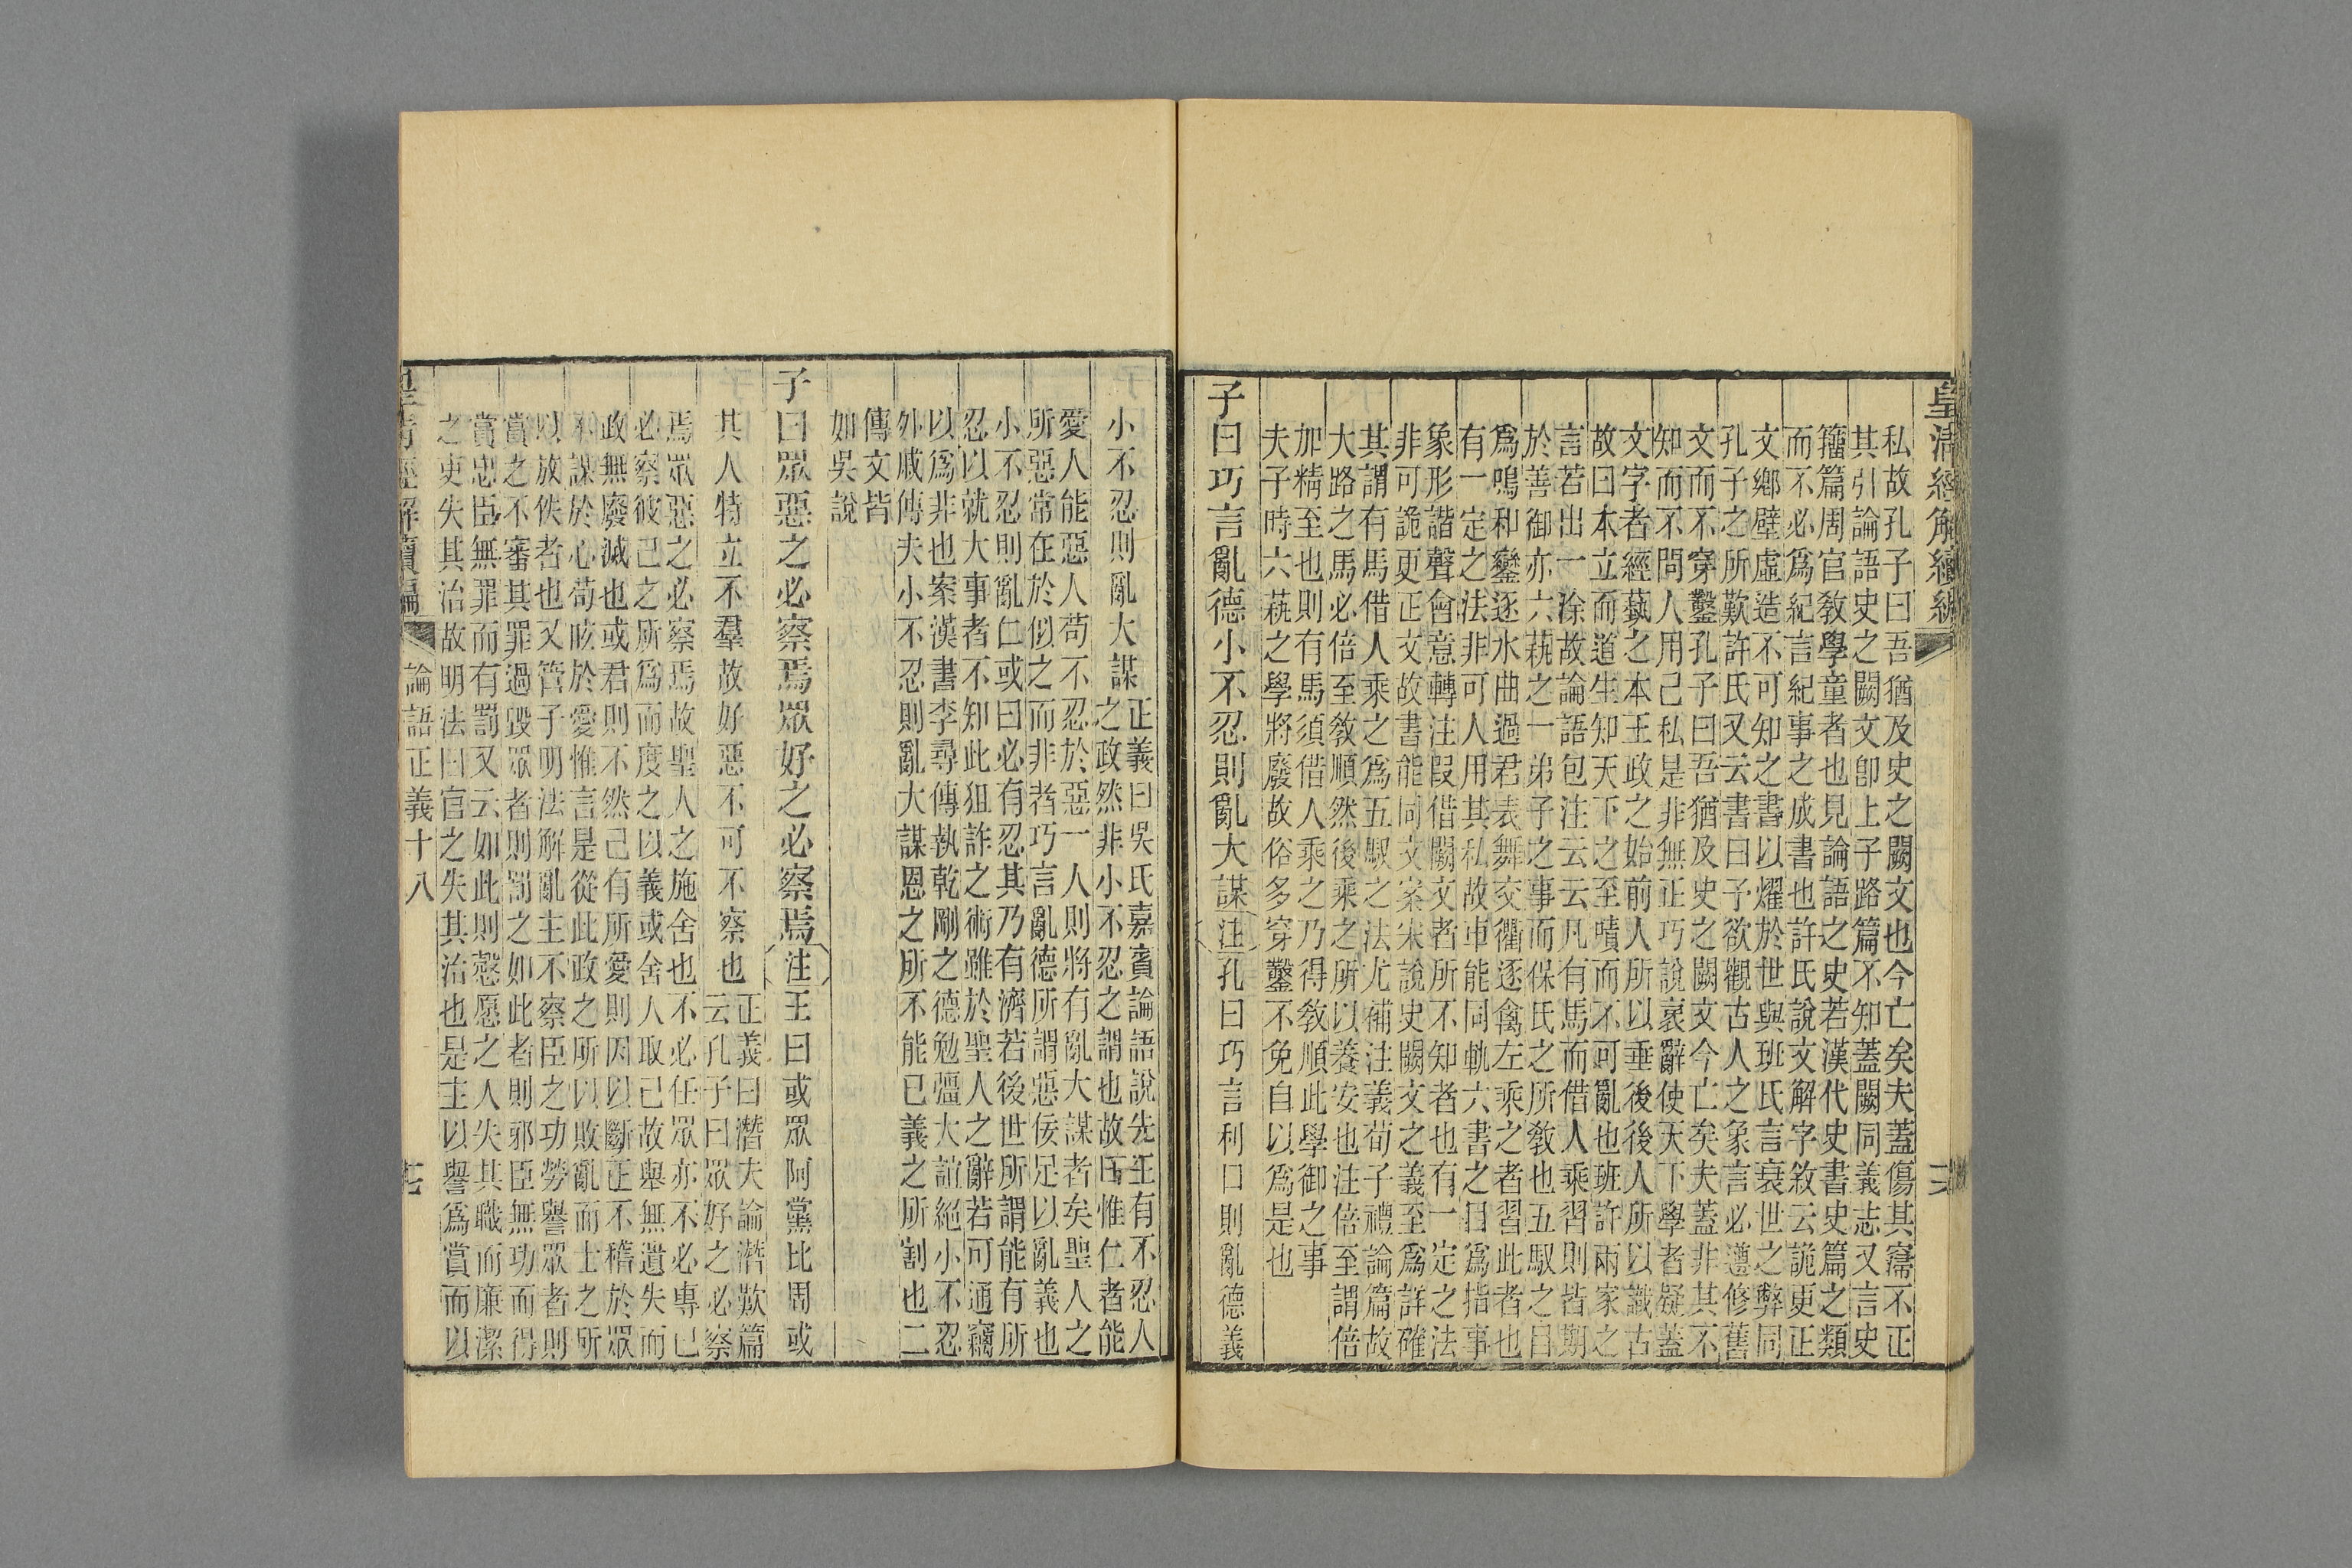 皇清經解續編
私故孔子曰吾猶及史之闕文也今亡矣夫蓋傷其寖不正
其引論語史之闕文卽上子路篇不知蓋闕同義志又言史
籒篇周官教學童者也見論語之史若漢代史書史篇之類
而不必爲紀言紀事之成書也許氏說文解字敘云詭更正
文鄉壁虛造不可知之書以燿於世與班氏言衰世之弊同
孔子之所歎許氏又云書曰予欲觀古人之象言必遵修舊
文而不穿鑿孔子曰吾猶及史之闕文今亡矣夫蓋非其不
知而不問人用己私是非無正巧說衺辭使天下學者疑蓋
文字者經藝之本王政之始前人所以垂後後人所以識古
故曰本立而道生知天下之至嘖而不可亂也班許兩家之
言若出一涂故論語包注云云凡有馬而借人乘習則皆期
於善御亦六藝之一弟子之事而保氏之所教也五馭之目
爲鳴和鑾逐水曲過君表舞交衢逐禽左乘之者習此者也
有一定之法非可人用其私故車能同軌六書之目爲指事
象形諧聲會意轉注叚借闕文者所不知者也有一定之法
非可詭更正文故書能同文案宋說史闕文之義至爲詳確
其謂有馬借人乘之爲五馭之法尤補注義荀子禮論篇故
大路之馬必倍至教順然後乘之所以養安也注倍至謂倍
加精至也則有馬須借人乘之乃得教順此學御之事
夫子時六蓺之學將廢故俗多穿鑿不免自以爲是也
子曰巧言亂德小不忍則亂大謀注孔曰巧言利口則亂德義
小不忍則亂大謀正義曰吳氏嘉賓論語說先王有不忍人
之政然非小不忍之謂也故曰惟仁者能
愛人能惡人苟不忍於惡一人則將有亂大謀者矣聖人之
所惡常在於似之而非者巧言亂德所謂惡佞足以亂義也
小不忍則亂仁或曰必有忍其乃有濟若後世所謂能有所
忍以就大事者不知此狙詐之術雖於聖人之辭若可通竊
以爲非也案漢書李尋傳執乾剛之德勉彊大誼絕小不忍
外戚傳夫小不忍則亂大謀恩之所不能已義之所割也二
傳文皆
如吳說
子曰眾惡之必察焉眾好之必察焉注王曰或眾阿黨比周或
其人特立不羣故好惡不可不察也正義曰潛夫論潛歎篇
云孔子曰眾好之必察
焉眾惡之必察焉故聖人之施舍也不必任眾亦不必專己
必察彼己之所爲而度之以義或舍人取己故舉無遺失而
政無廢滅也或君則不然己有所愛則因以斷正不稽於眾
不謀於心苟眩於愛惟言是從此政之所以敗亂而士之所
以放佚者也又管子明法解亂主不察臣之功勞譽眾者則
賞之不審其罪過毀眾者則罰之如此者則邪臣無功而得
賞忠臣無罪而有罰又云如此則愨愿之人失其職而廉潔
之吏失其治故明法曰官之失其治也是主以譽爲賞而以
皇清經解續編 論語正義十八